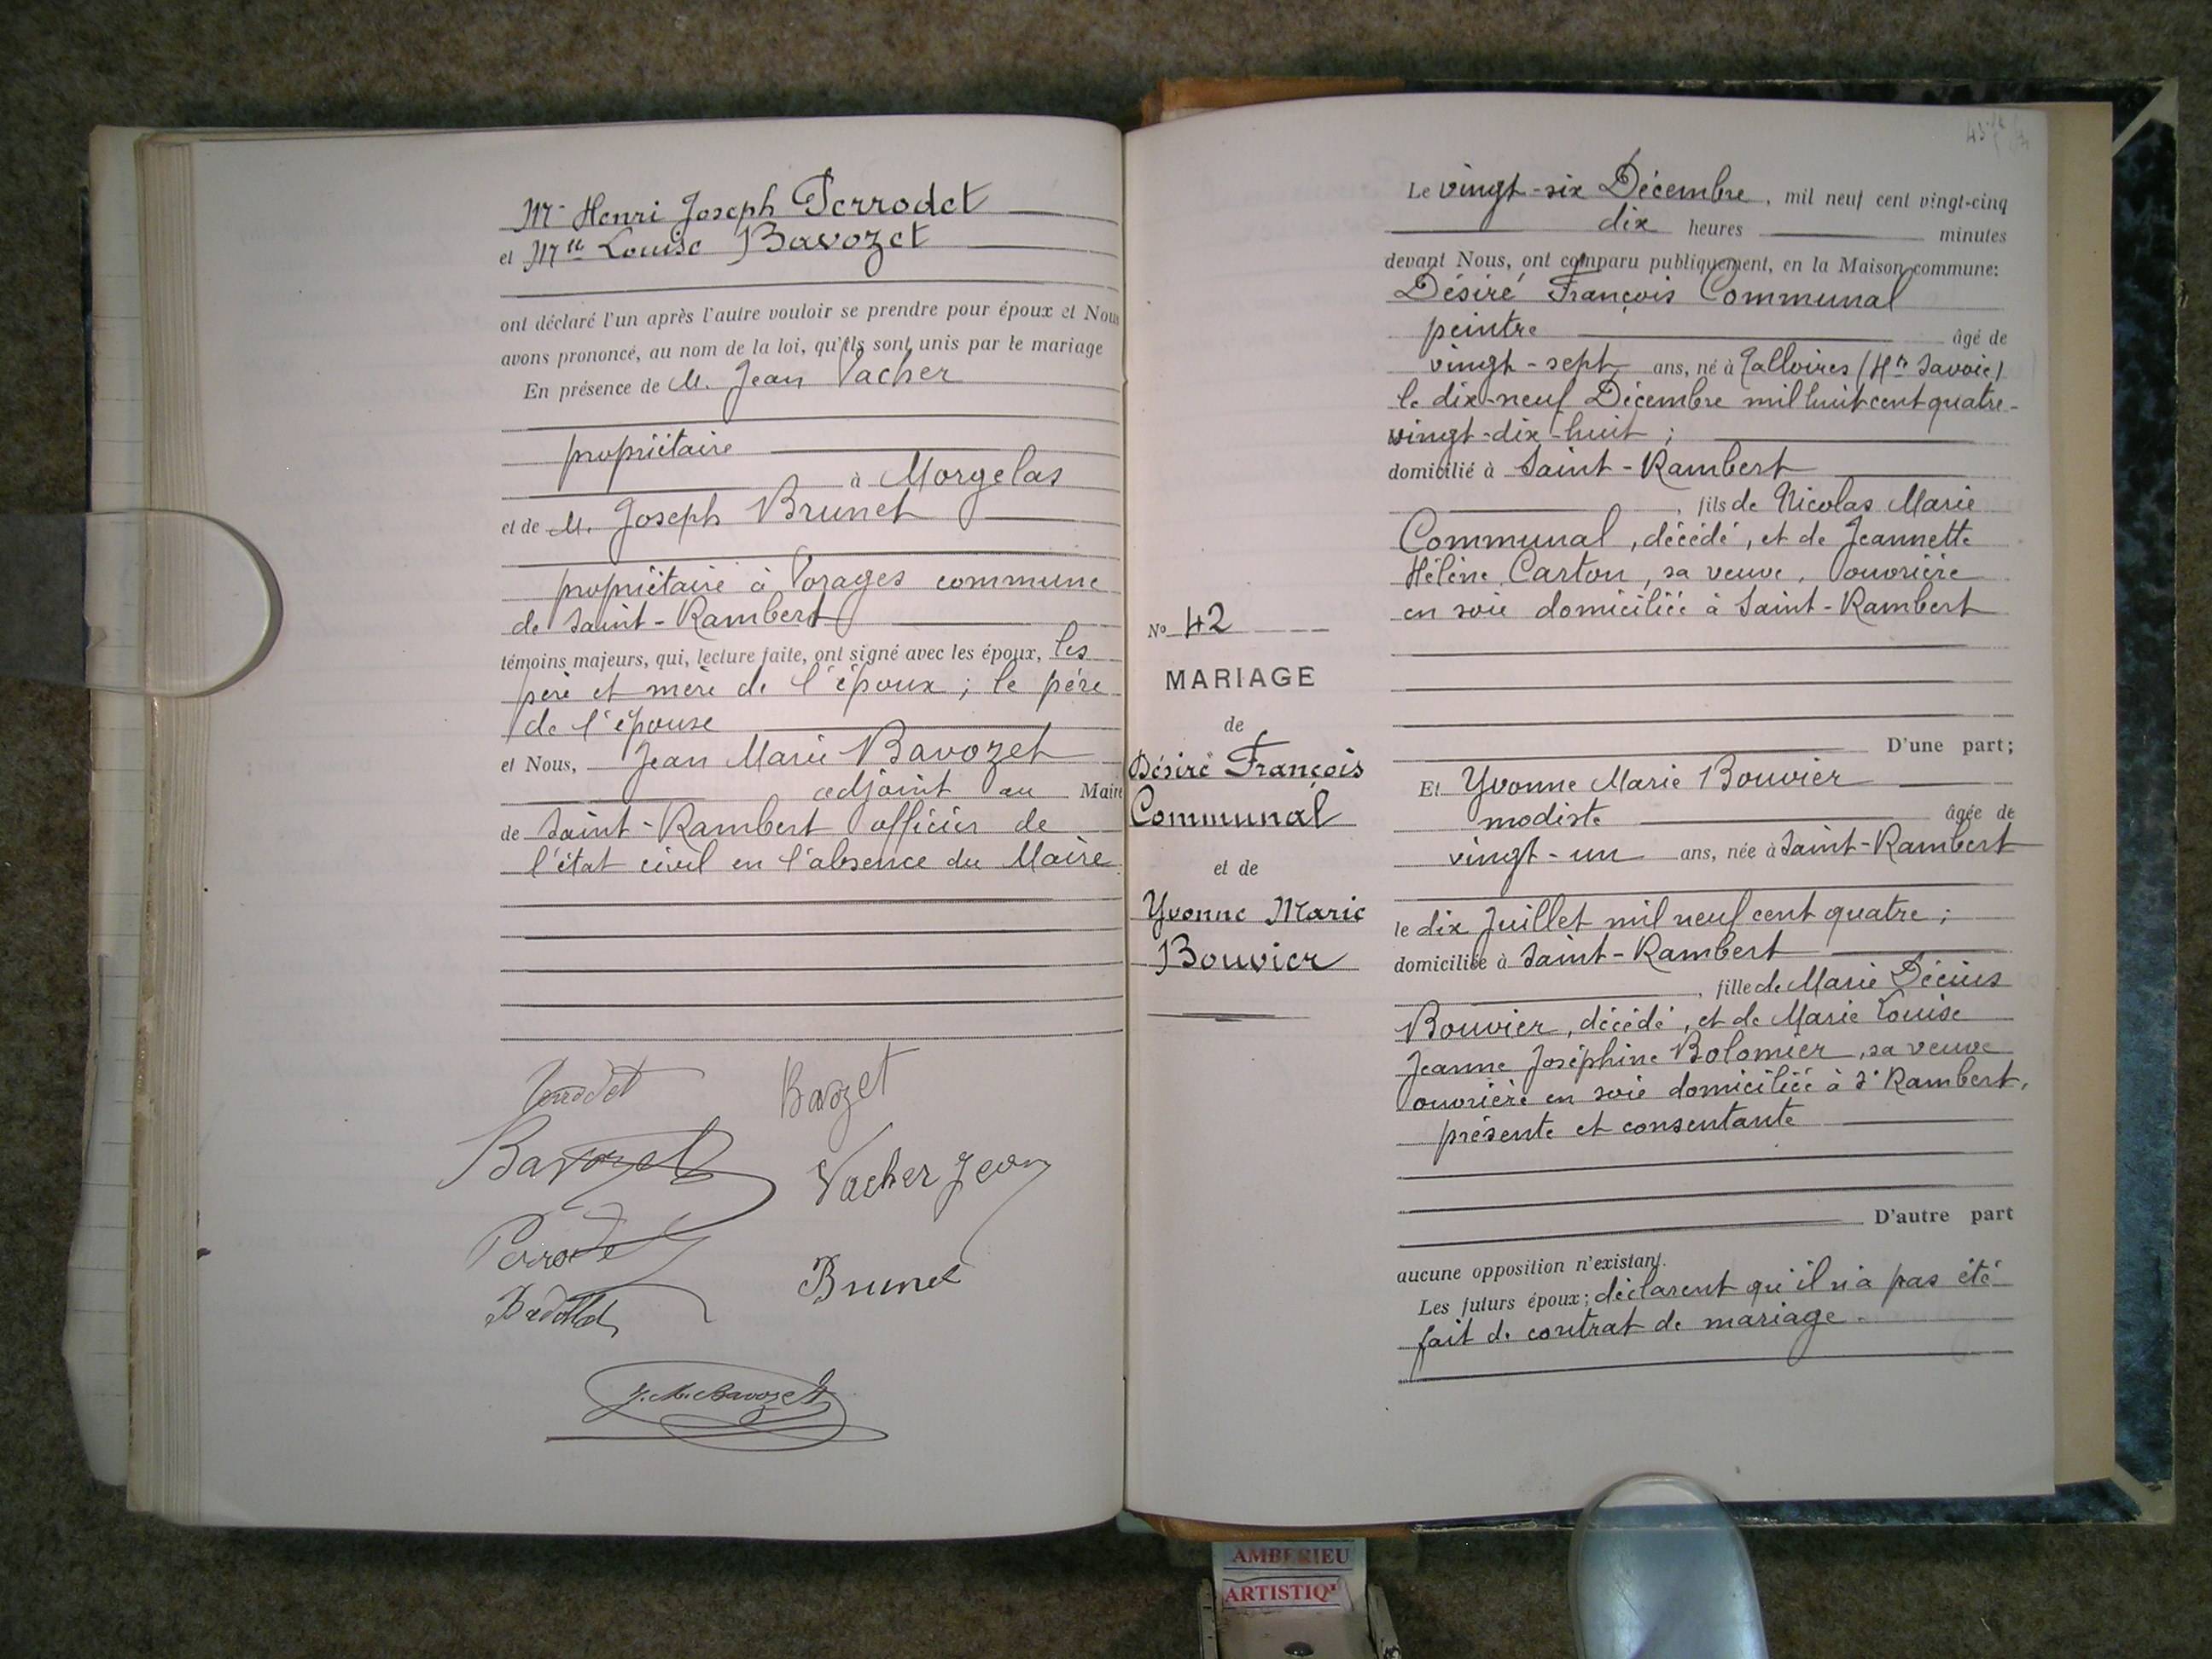 Mr Henri Joseph Perrodet
et Mlle Louise Bavozet
ont déclaré l'un après l'autre vouloir se prendre pour époux et Nous
avons prononcé, au nom de la loi, qu'ils sont unis par le mariage
En présence de M. Jean Vacher
propriétaire
à Morgelas
et de M. Joseph Brunet
propriétaire à Vorages commune
de Saint-Rambert
témoins majeurs, qui, lecture faite, ont signé avec les époux, les
père et mère de l'époux ; le père
de l'épouse
et Nous, Jean Marie Bavozet
adjoint au Maire
de Saint-Rambert officier de
l'état civil en l'absence du Maire
Bavozet
Bavozet
Vacher Jean
Perrodet
Brunet
J. M. Bavozet
No 42
MARIAGE
de
Désiré François
Communal
et de
Yvonne Marie
Bouvier
Le vingt-six Décembre, mil neuf cent vingt-cinq
dix heures minutes
devant Nous, ont comparu publiquement, en la Maison commune:
Désiré François Communal
peintre âgé de
vingt-sept ans, né à Talloires (Hte Savoie)
le dix-neuf Décembre mil huit cent quatre-
vingt-dix-huit ;
domicilié à Saint-Rambert
, fils de Nicolas Marie
Communal, décédé, et de Jeannette
Hélène Carton, sa veuve, ouvrière
en soie domiciliée à Saint-Rambert
D'une part;
Et Yvonne Marie Bouvier
modiste âgée de
vingt-un ans, née à Saint-Rambert
le dix Juillet mil neuf cent quatre ;
domiciliée à Saint-Rambert
, fille de Marie Décius
Bouvier, décédé, et de Marie Louise
Jeanne Joséphine Bolomier, sa veuve
ouvrière en soie domiciliée à St Rambert,
présente et consentante
D'autre part
aucune opposition n'existant.
Les futurs époux; déclarent qu'il n'a pas été
fait de contrat de mariage.
AMBERIEU
ARTISTIQ